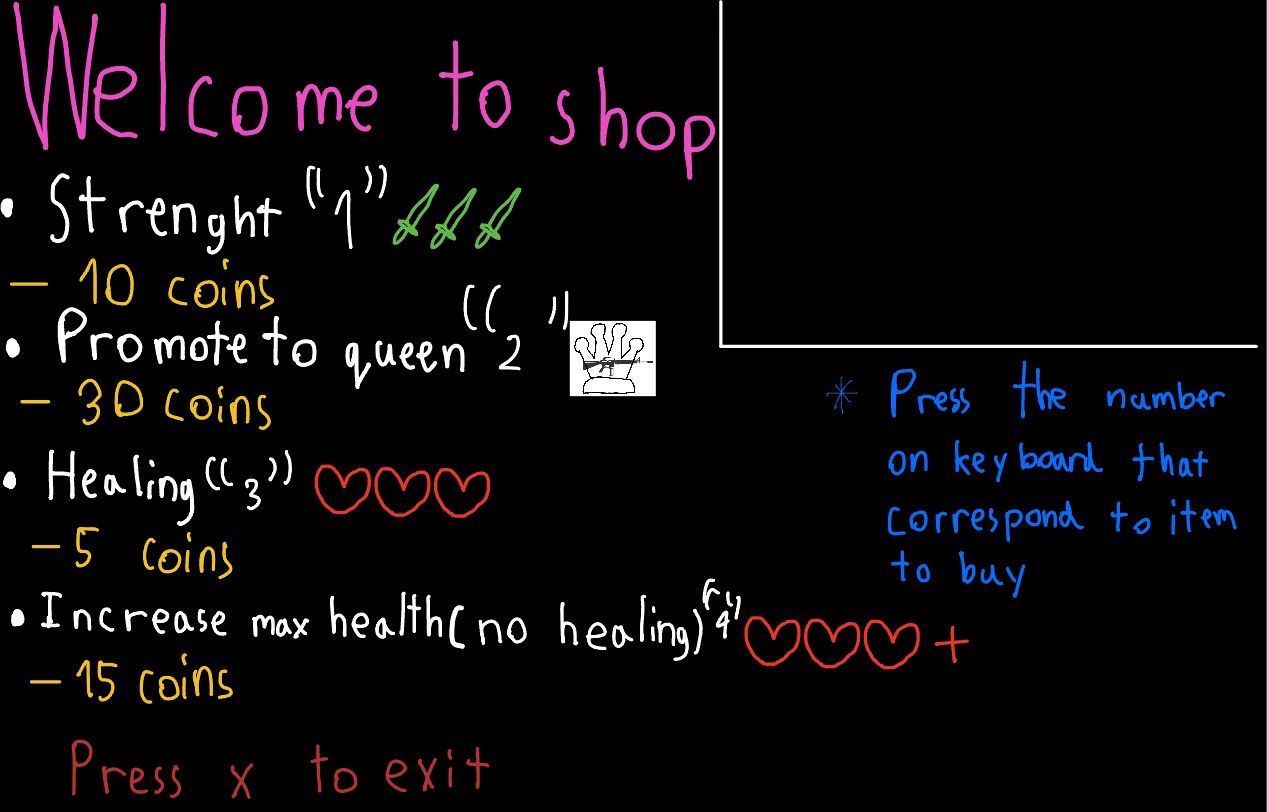 Welcome to shop
• Strenght "1"
- 10 coins
• Promote to queen "2"
- 30 coins
• Healing "3"
- 5 coins
• Increase max health (no healing) "4"
- 15 coins
Press x to exit
* Press the number
on keyboard that
correspond to item
to buy